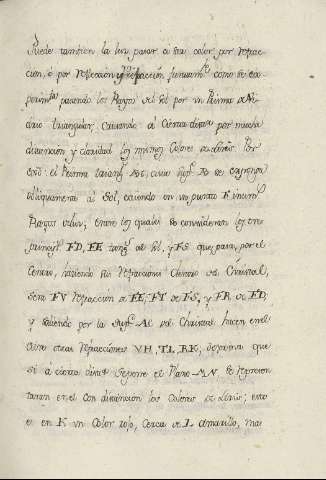 Puede tambien la luz pasar a ser color por refrac-
cion, o por reflexion y refraccion juntamte como se ex-
perimta pasando los Rayos del Sol por un Prisma de Vi-
drio triangular. Causando a cierta distza por mucha
distincion y claridad los mismos Colores de el Iris. Por
exo: el Prisma triangr ABC, cuia supfe AB se exponga
obliquamente al Sol, cayendo en un punto F
Rayos de luz; entre los quales se consideran los tres
princips FD, FE tangs al Sol, y FS que pasa por el
Centro, haziendo su refraccion dentro del Christal,
sera FV refraccion de FE; FT de FS, y FR de FD;
y saliendo por la supfe AC del Christal hacen en el
Aire otras refracciones VH, TI, RK; de forma que
si a cierta distza se pone el Plano MN se represen-
taran en el con distincion los Colores de el Iris; esto
es en K un Color rojo, cerca de L amarillo, mas